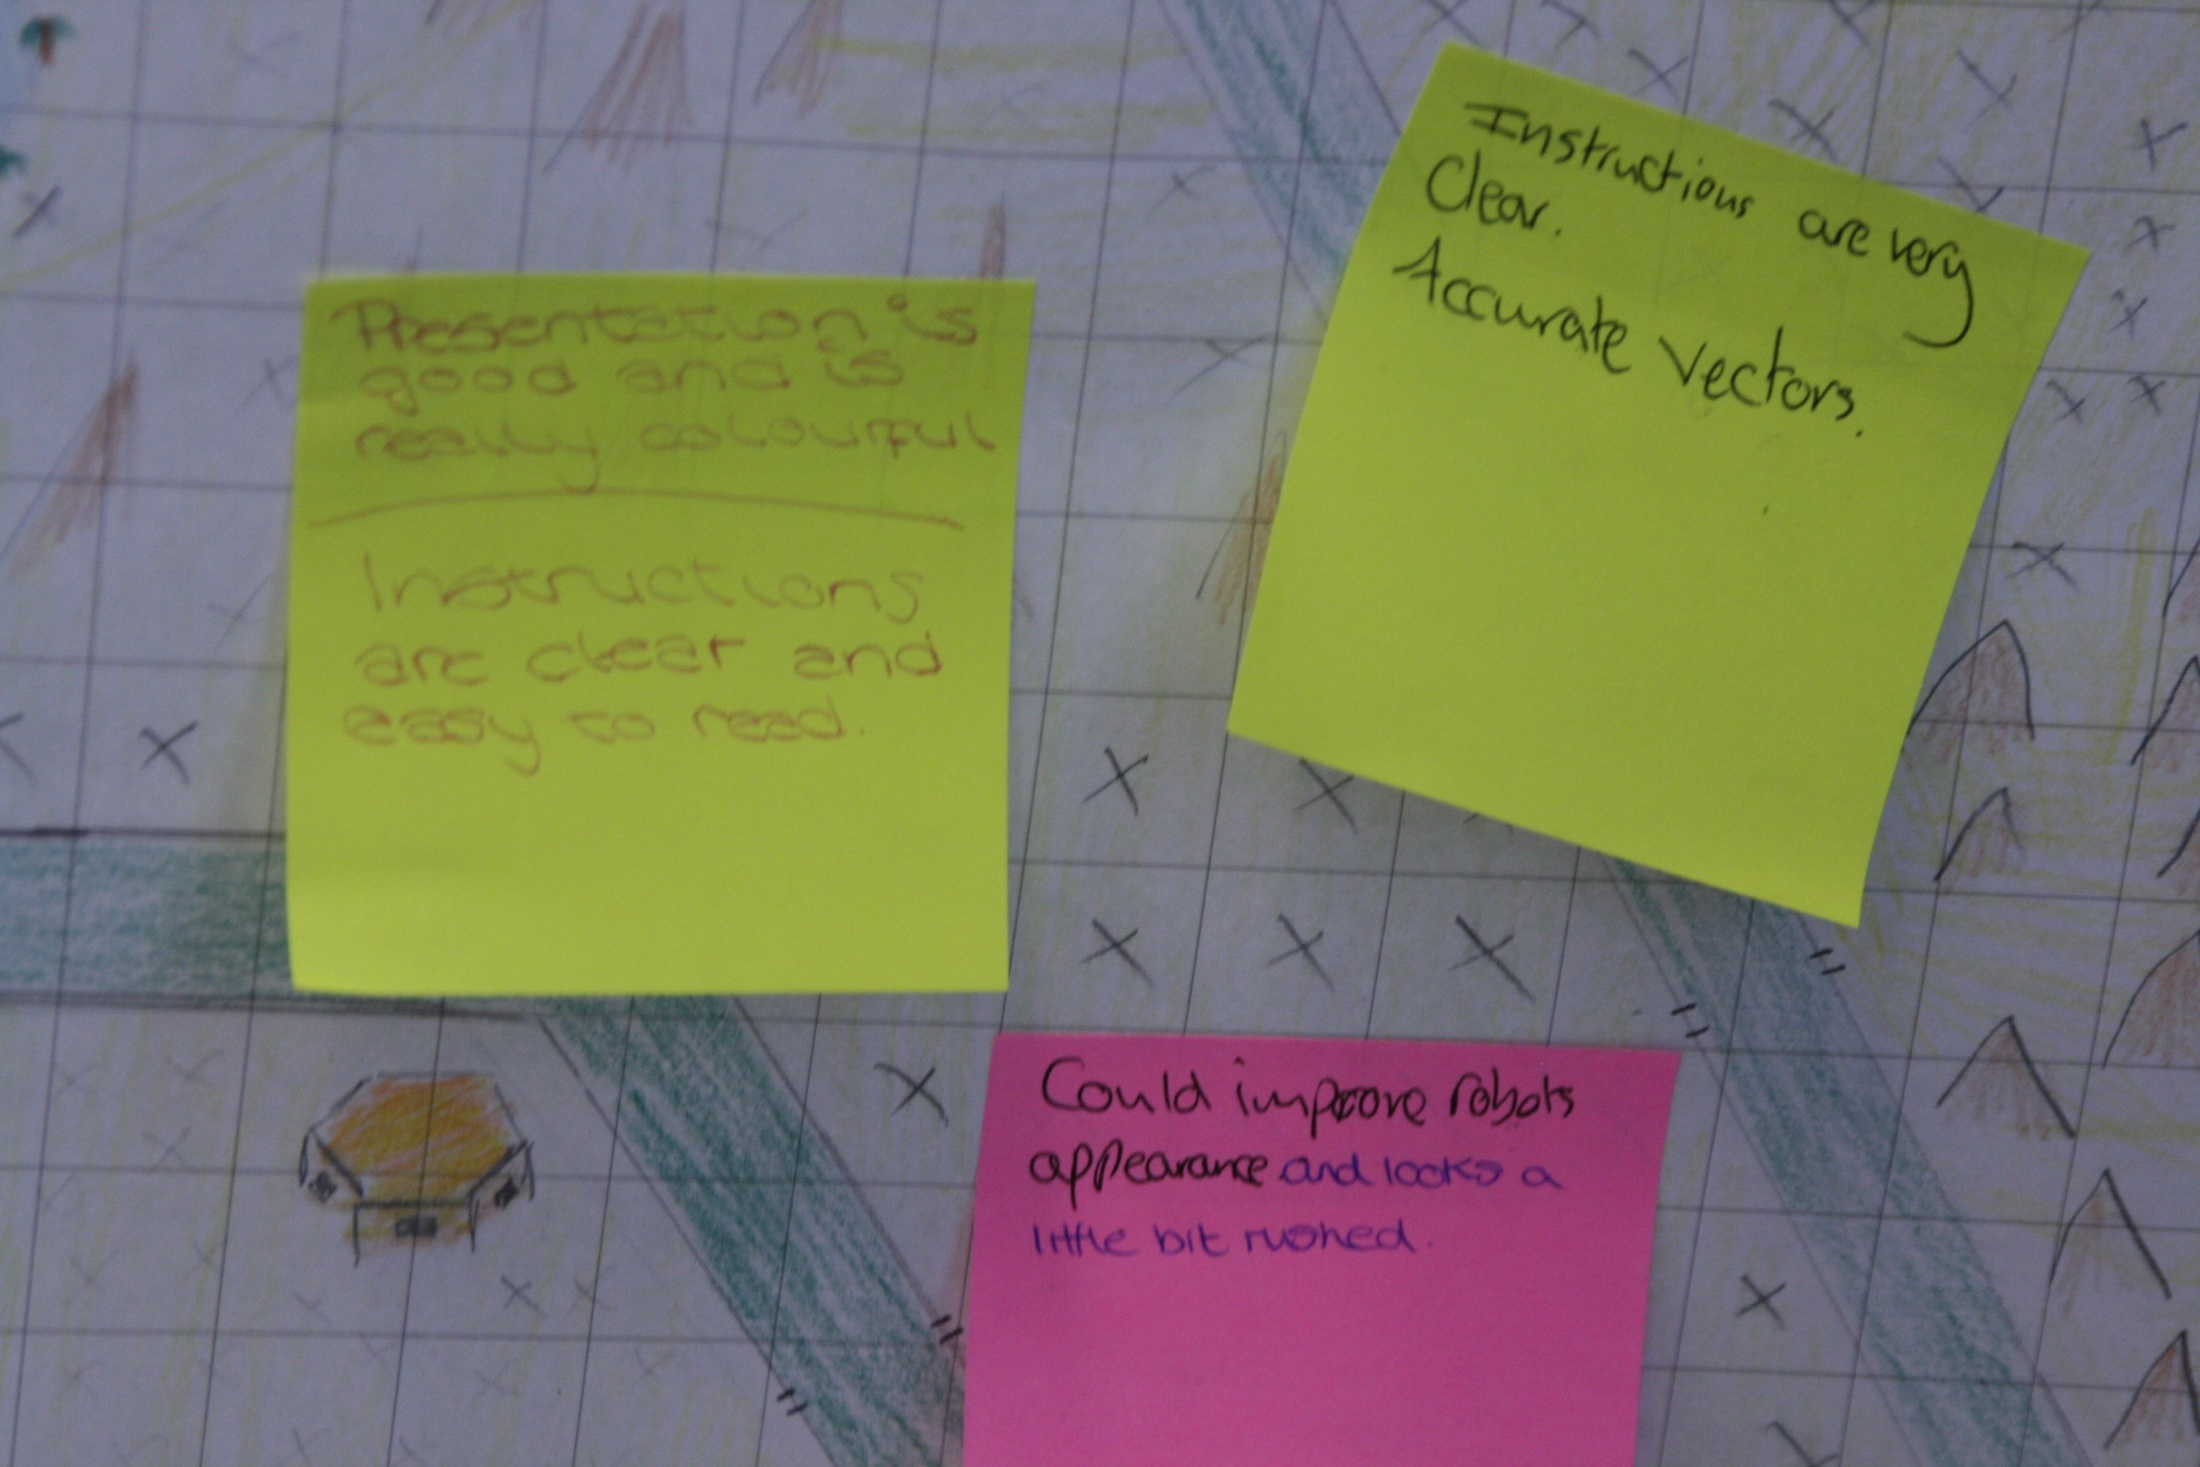 Presentation is
good and is
really colourful
Instructions
are clear and
easy to read.
Instructions are very
Clear.
Accurate vectors.
Could improve robots
appearance and looks a
little bit rushed.